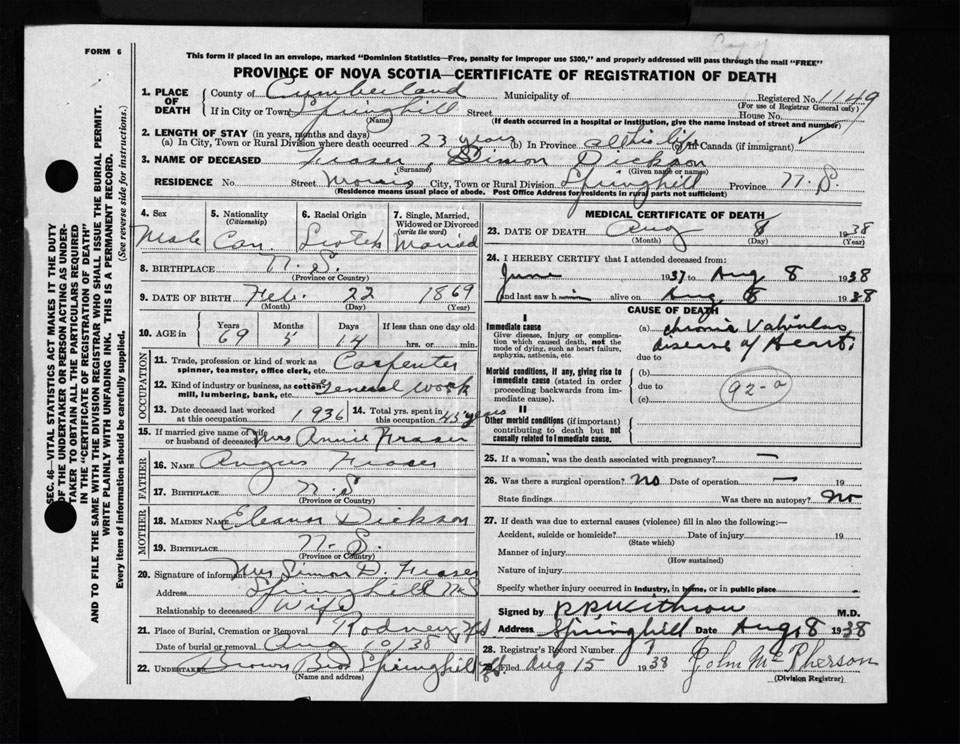 Copy
FORM 6
This form if placed in an envelope, marked "Dominion Statistics—Free, penalty for improper use $300," and properly addressed will pass through the mail "FREE"
PROVINCE OF NOVA SCOTIA—CERTIFICATE OF REGISTRATION OF DEATH
SEC. 46—VITAL STATISTICS ACT MAKES IT THE DUTY
OF THE UNDERTAKER OR PERSON ACTING AS UNDER-
TAKER TO OBTAIN ALL THE PARTICULARS REQUIRED
IN THE "CERTIFICATE OF REGISTRATION OF DEATH"
AND TO FILE THE SAME WITH THE DIVISION REGISTRAR WHO SHALL ISSUE THE BURIAL PERMIT.
WRITE PLAINLY WITH UNFADING INK. THIS IS A PERMANENT RECORD.
Every item of information should be carefully supplied. (See reverse side for instructions.)
1. PLACE OF DEATH
County of Cumberland Municipality of Registered No. 1149
(For use of Registrar General only)
If in City or Town Springhill Street House No.
(Name) (If death occurred in a hospital or institution, give the name instead of street and number)
2. LENGTH OF STAY (in years, months and days)
(a) In City, Town or Rural Division where death occurred 23 years (b) In Province all his life (c) In Canada (if immigrant)
3. NAME OF DECEASED Fraser, Simon Dickson
(Surname) (Given name or names)
RESIDENCE No. Street Morris City, Town or Rural Division Springhill Province N.S.
(Residence means usual place of abode. Post Office Address for residents in rural parts not sufficient)
4. Sex Male
5. Nationality (Citizenship) Can.
6. Racial Origin Scotch
7. Single, Married, Widowed or Divorced (write the word) Married
8. BIRTHPLACE N.S.
(Province or Country)
9. DATE OF BIRTH Feb. 22 1869
(Month) (Day) (Year)
10. AGE in Years 69 Months 5 Days 14 If less than one day old hrs. or min.
OCCUPATION
11. Trade, profession or kind of work as spinner, teamster, office clerk, etc. Carpenter
12. Kind of industry or business, as cotton mill, lumbering, bank, etc. General Work
13. Date deceased last worked at this occupation 1936
14. Total yrs. spent in this occupation 45 years
15. If married give name of wife or husband of deceased Mrs Annie Fraser
FATHER
16. NAME Angus Fraser
17. BIRTHPLACE N.S
(Province or Country)
MOTHER
18. MAIDEN NAME Eleanor Dickson
19. BIRTHPLACE N.S.
(Province or Country)
20. Signature of informant Mrs Simon D. Fraser
Address Springhill N.S
Relationship to deceased Wife
21. Place of Burial, Cremation or Removal Rodney N.S
Date of burial or removal Aug 10/38
22. UNDERTAKER Brown Bros Springhill N.S.
(Name and address)
MEDICAL CERTIFICATE OF DEATH
23. DATE OF DEATH Aug 8 1938
(Month) (Day) (Year)
24. I HEREBY CERTIFY that I attended deceased from:
June 1937 to Aug 8 1938
and last saw him alive on Aug 8 1938
CAUSE OF DEATH
I
Immediate cause
Give disease, injury or complication which caused death, not the mode of dying, such as heart failure, asphyxia, asthenia, etc.
(a) Chronic Valvular
disease of Heart.
due to
Morbid conditions, if any, giving rise to immediate cause (stated in order proceeding backwards from immediate cause).
(b)
due to
(c)
92-a
II
Other morbid conditions (if important) contributing to death but not causally related to Immediate cause.
25. If a woman, was the death associated with pregnancy? —
26. Was there a surgical operation? No Date of operation — 19
State findings Was there an autopsy? No
27. If death was due to external causes (violence) fill in also the following:—
Accident, suicide or homicide? Date of injury 19
(State which)
Manner of injury
(How sustained)
Nature of injury
Specify whether injury occurred in Industry, in home, or in public place
Signed by M.D.
Address Springhill Date Aug 8 1938
28. Registrar's Record Number
29. Filed Aug 15 1938 John McPherson
(Division Registrar)